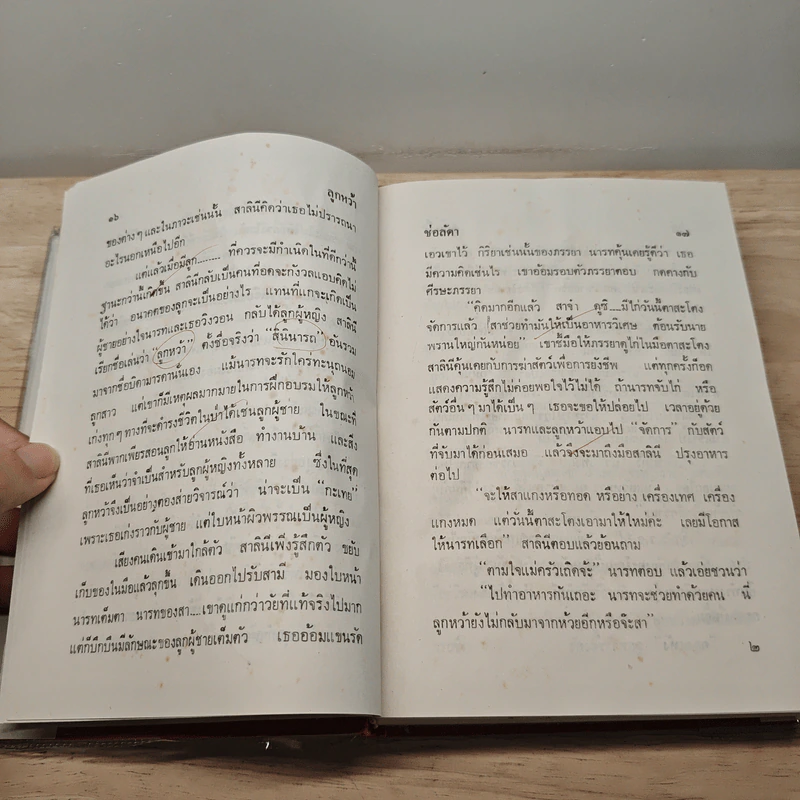 ๑๖
ลูกหว้า
ของต่าง ๆ และในภาวะเช่นนั้น สาลินีคิดว่าเธอไม่ปรารถนา
อะไรนอกเหนือไปอีก
แต่แล้วเมื่อมีลูก........ ที่ควรจะมีกำเนิดในที่ดีกว่านี้
ฐานะกว่านี้เกิดขึ้น สาลินีกลับเป็นคนที่อดจะกังวลแอบคิดไม่
ได้ว่า อนาคตของลูกจะเป็นอย่างไร แทนที่แกจะเกิดเป็น
ผู้ชายอย่างใจนารทและเธอวิงวอน กลับได้ลูกผู้หญิง สาลินี
เรียกชื่อเล่นว่า "ลูกหว้า" ตั้งชื่อจริงว่า "สินินารถ" อันรวม
มาจากชื่อบิดามารดานั่นเอง แม้นารทจะรักใคร่ทะนุถนอม
ลูกสาว แต่เขาก็มีเหตุผลมากมายในการฝึกอบรมให้ลูกหว้า
เก่งทุก ๆ ทางที่จะดำรงชีวิตในป่าได้เช่นลูกผู้ชาย ในขณะที่
สาลินีพากเพียรสอนลูกให้อ่านหนังสือ ทำงานบ้าน และสิ่ง
ที่เธอเห็นว่าจำเป็นสำหรับลูกผู้หญิงทั้งหลาย ซึ่งในที่สุด
ลูกหว้าจึงเป็นอย่างตองส่ายวิจารณ์ว่า น่าจะเป็น "กะเทย"
เพราะเธอเก่งราวกับผู้ชาย แต่ใบหน้าผิวพรรณเป็นผู้หญิง
เสียงคนเดินเข้ามาใกล้ตัว สาลินีเพิ่งรู้สึกตัว ขยับ
เก็บของในมือแล้วลุกขึ้น เดินออกไปรับสามี มองใบหน้า
นารทเต็มตา นารทของสา....เขาดูแก่กว่าวัยที่แท้จริงไปมาก
แต่ก็บึกบึนมีลักษณะของลูกผู้ชายเต็มตัว เธออ้อมแขนรัด
ช่อลัดา
๑๗
เอวเขาไว้ กิริยาเช่นนั้นของภรรยา นารทคุ้นเคยรู้ดีว่า เธอ
มีความคิดเช่นไร เขาอ้อมรอบตัวภรรยาตอบ กดคางกับ
ศีรษะภรรยา
"คิดมากอีกแล้ว สาจ๋า ดูซิ....มีไก่วันนี้ตาสะโตง
จัดการแล้ว สาช่วยทำมันให้เป็นอาหารวิเศษ ต้อนรับนาย
พรานใหญ่กันหน่อย" เขาชี้มือให้ภรรยาดูไก่ในมือตาสะโตง
สาลินีคุ้นเคยกับการฆ่าสัตว์เพื่อการยังชีพ แต่ทุกครั้งก็อด
แสดงความรู้สึกไม่ค่อยพอใจไว้ไม่ได้ ถ้านารทจับไก่ หรือ
สัตว์อื่น ๆ มาได้เป็น ๆ เธอจะขอให้ปล่อยไป เวลาอยู่ด้วย
กันตามปกติ นารทและลูกหว้าแอบไป "จัดการ" กับสัตว์
ที่จับมาได้ก่อนเสมอ แล้วจึงจะมาถึงมือสาลินี ปรุงอาหาร
ต่อไป
"จะให้สาแกงหรือทอด หรือย่าง เครื่องเทศ เครื่อง
แกงหมด แต่วันนี้ตาสะโตงเอามาให้ใหม่ค่ะ เลยมีโอกาส
ให้นารทเลือก" สาลินีตอบแล้วย้อนถาม
"ตามใจแม่ครัวเถิดจ้ะ" นารทตอบ แล้วเอ่ยชวนว่า
"ไปทำอาหารกันเถอะ นารทจะช่วยทำด้วยคน นี่
ลูกหว้ายังไม่กลับมาจากห้วยอีกหรือจ๊ะสา"
๒